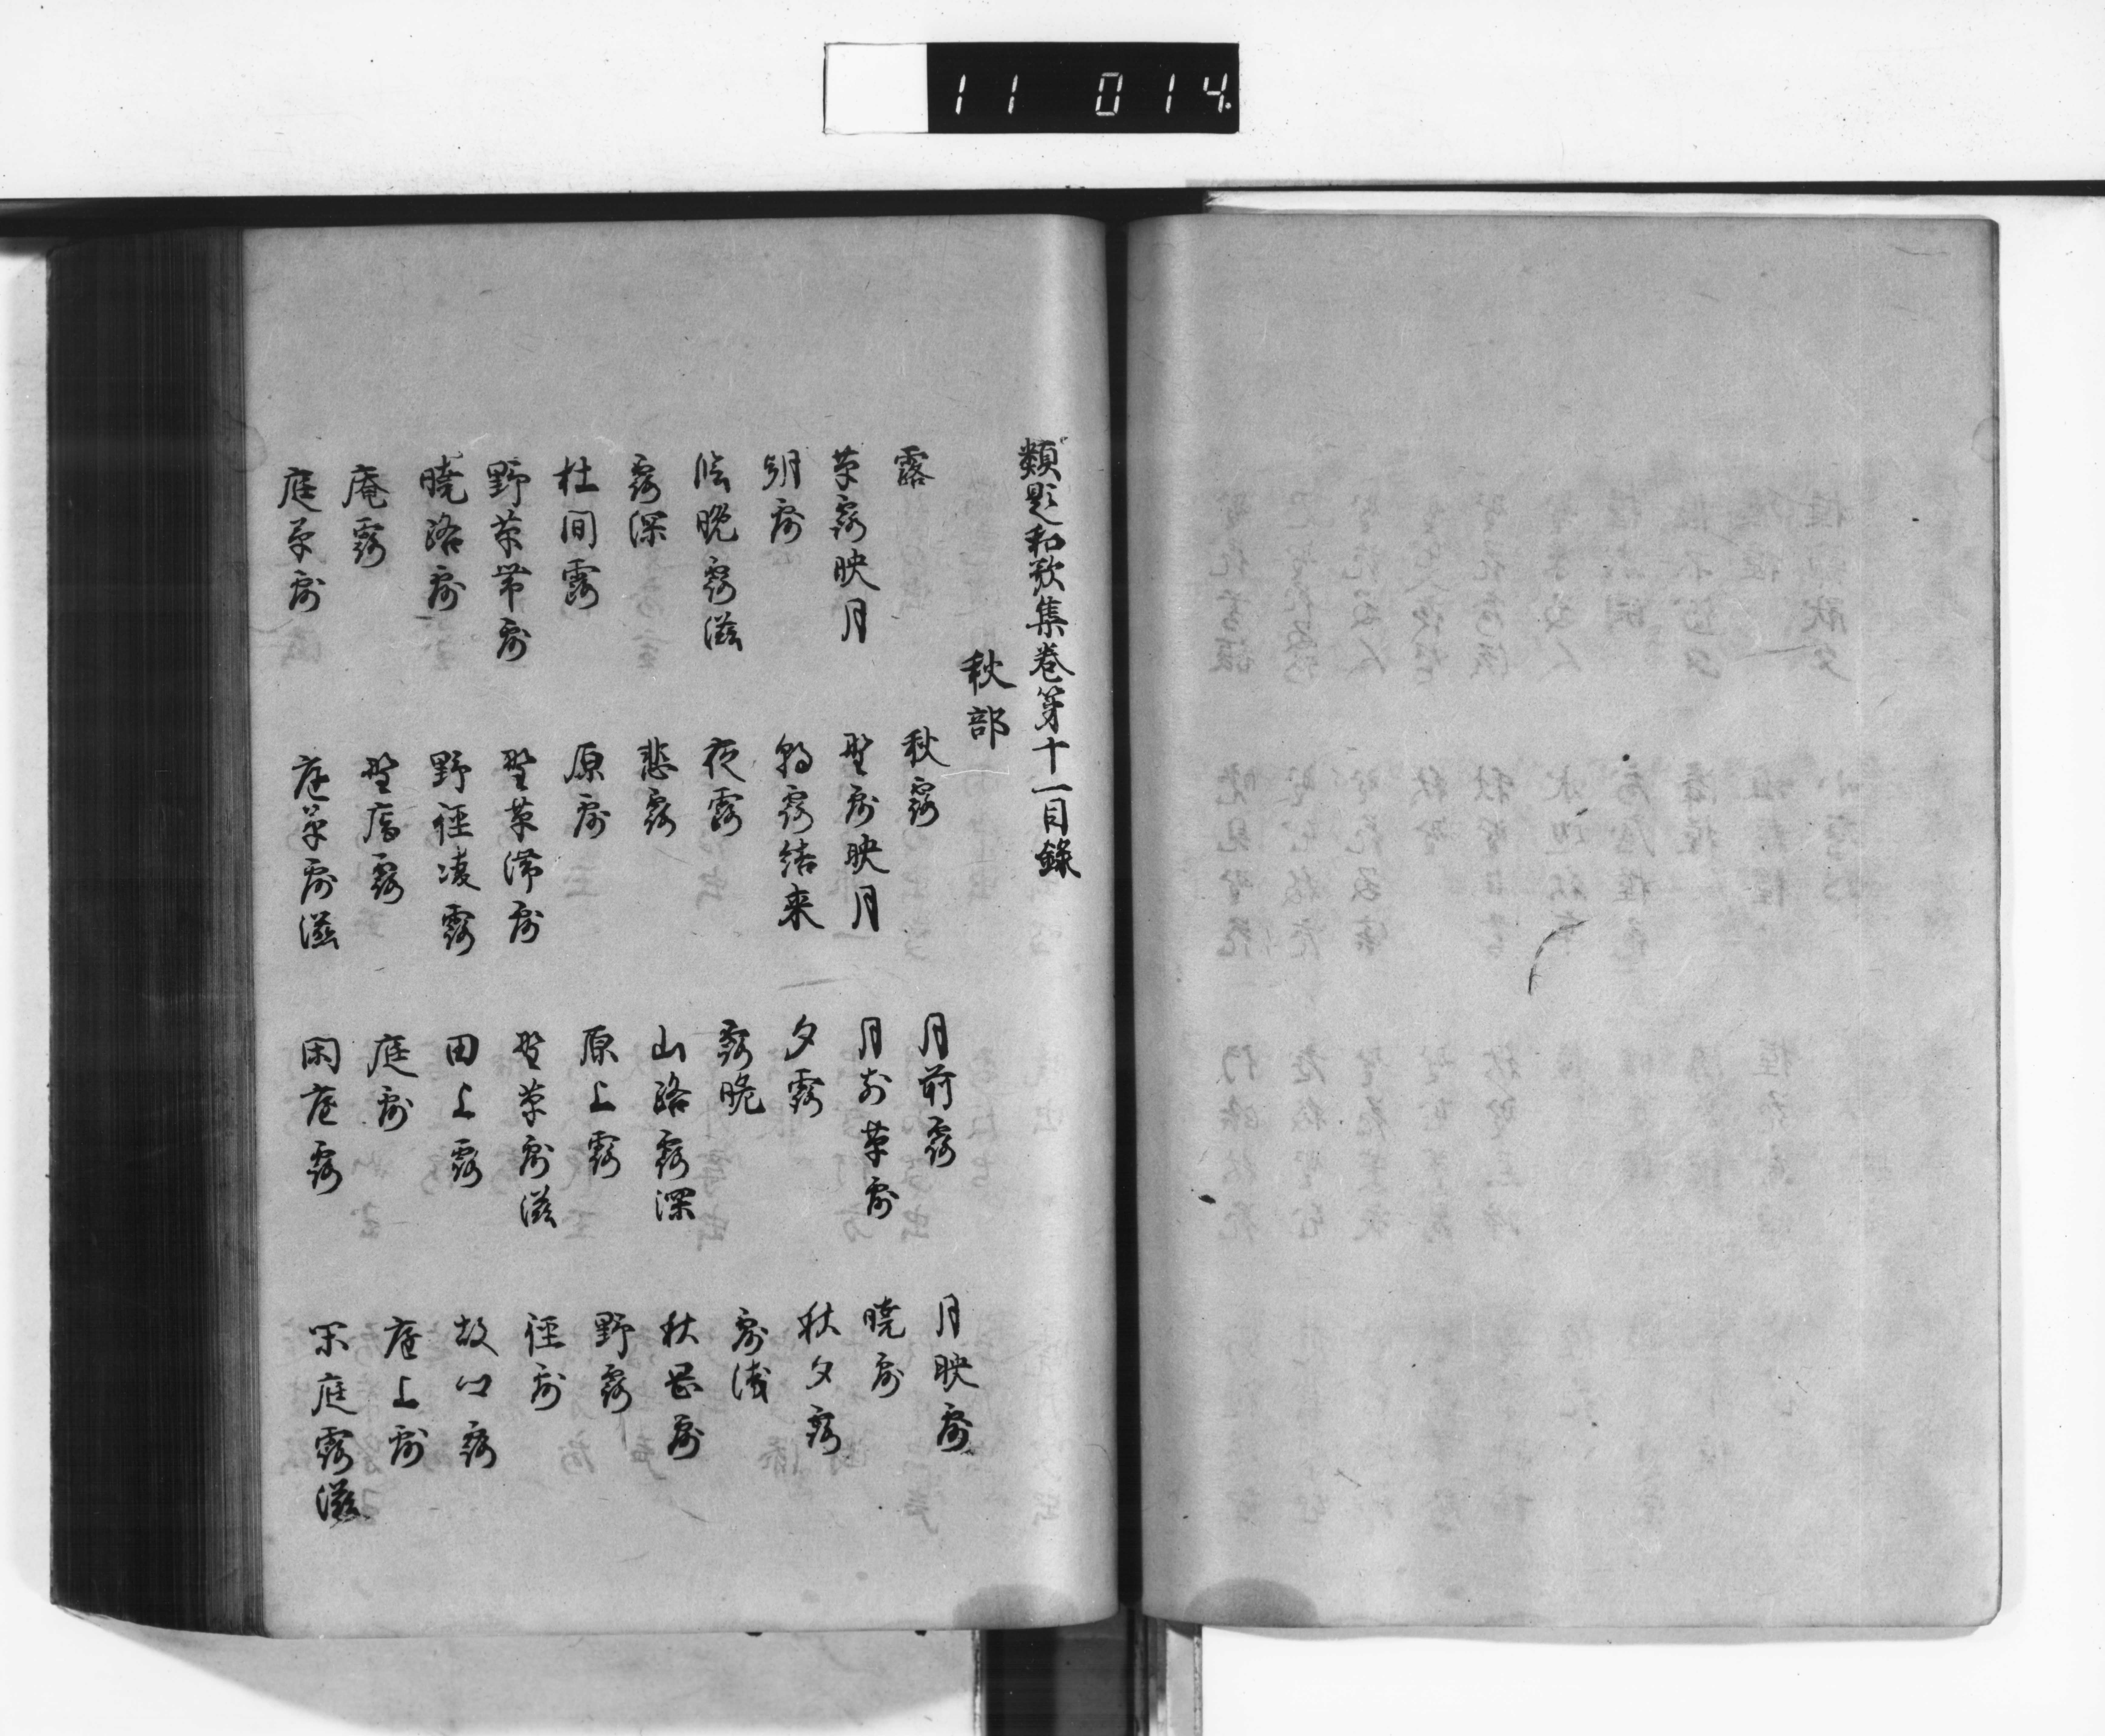 11 014
類題和歌集巻第十一目録
秋部
露 秋露 月前露 月映露
草露映月 野露映月 月前草露 暁露
朝露 朝露結来 夕露 秋夕露
晩露滋 夜露 露晩 露浅
露深 悲露 山路露深 秋岡露
杜間露 原露 原上露 野露
野草帯露 野草滞露 野草露滋 径露
暁路露 野径凌露 田上露 故郷露
庵露 野庵露 庭露 庭上露
庭草露 庭草露滋 閑庭露 閑庭露滋